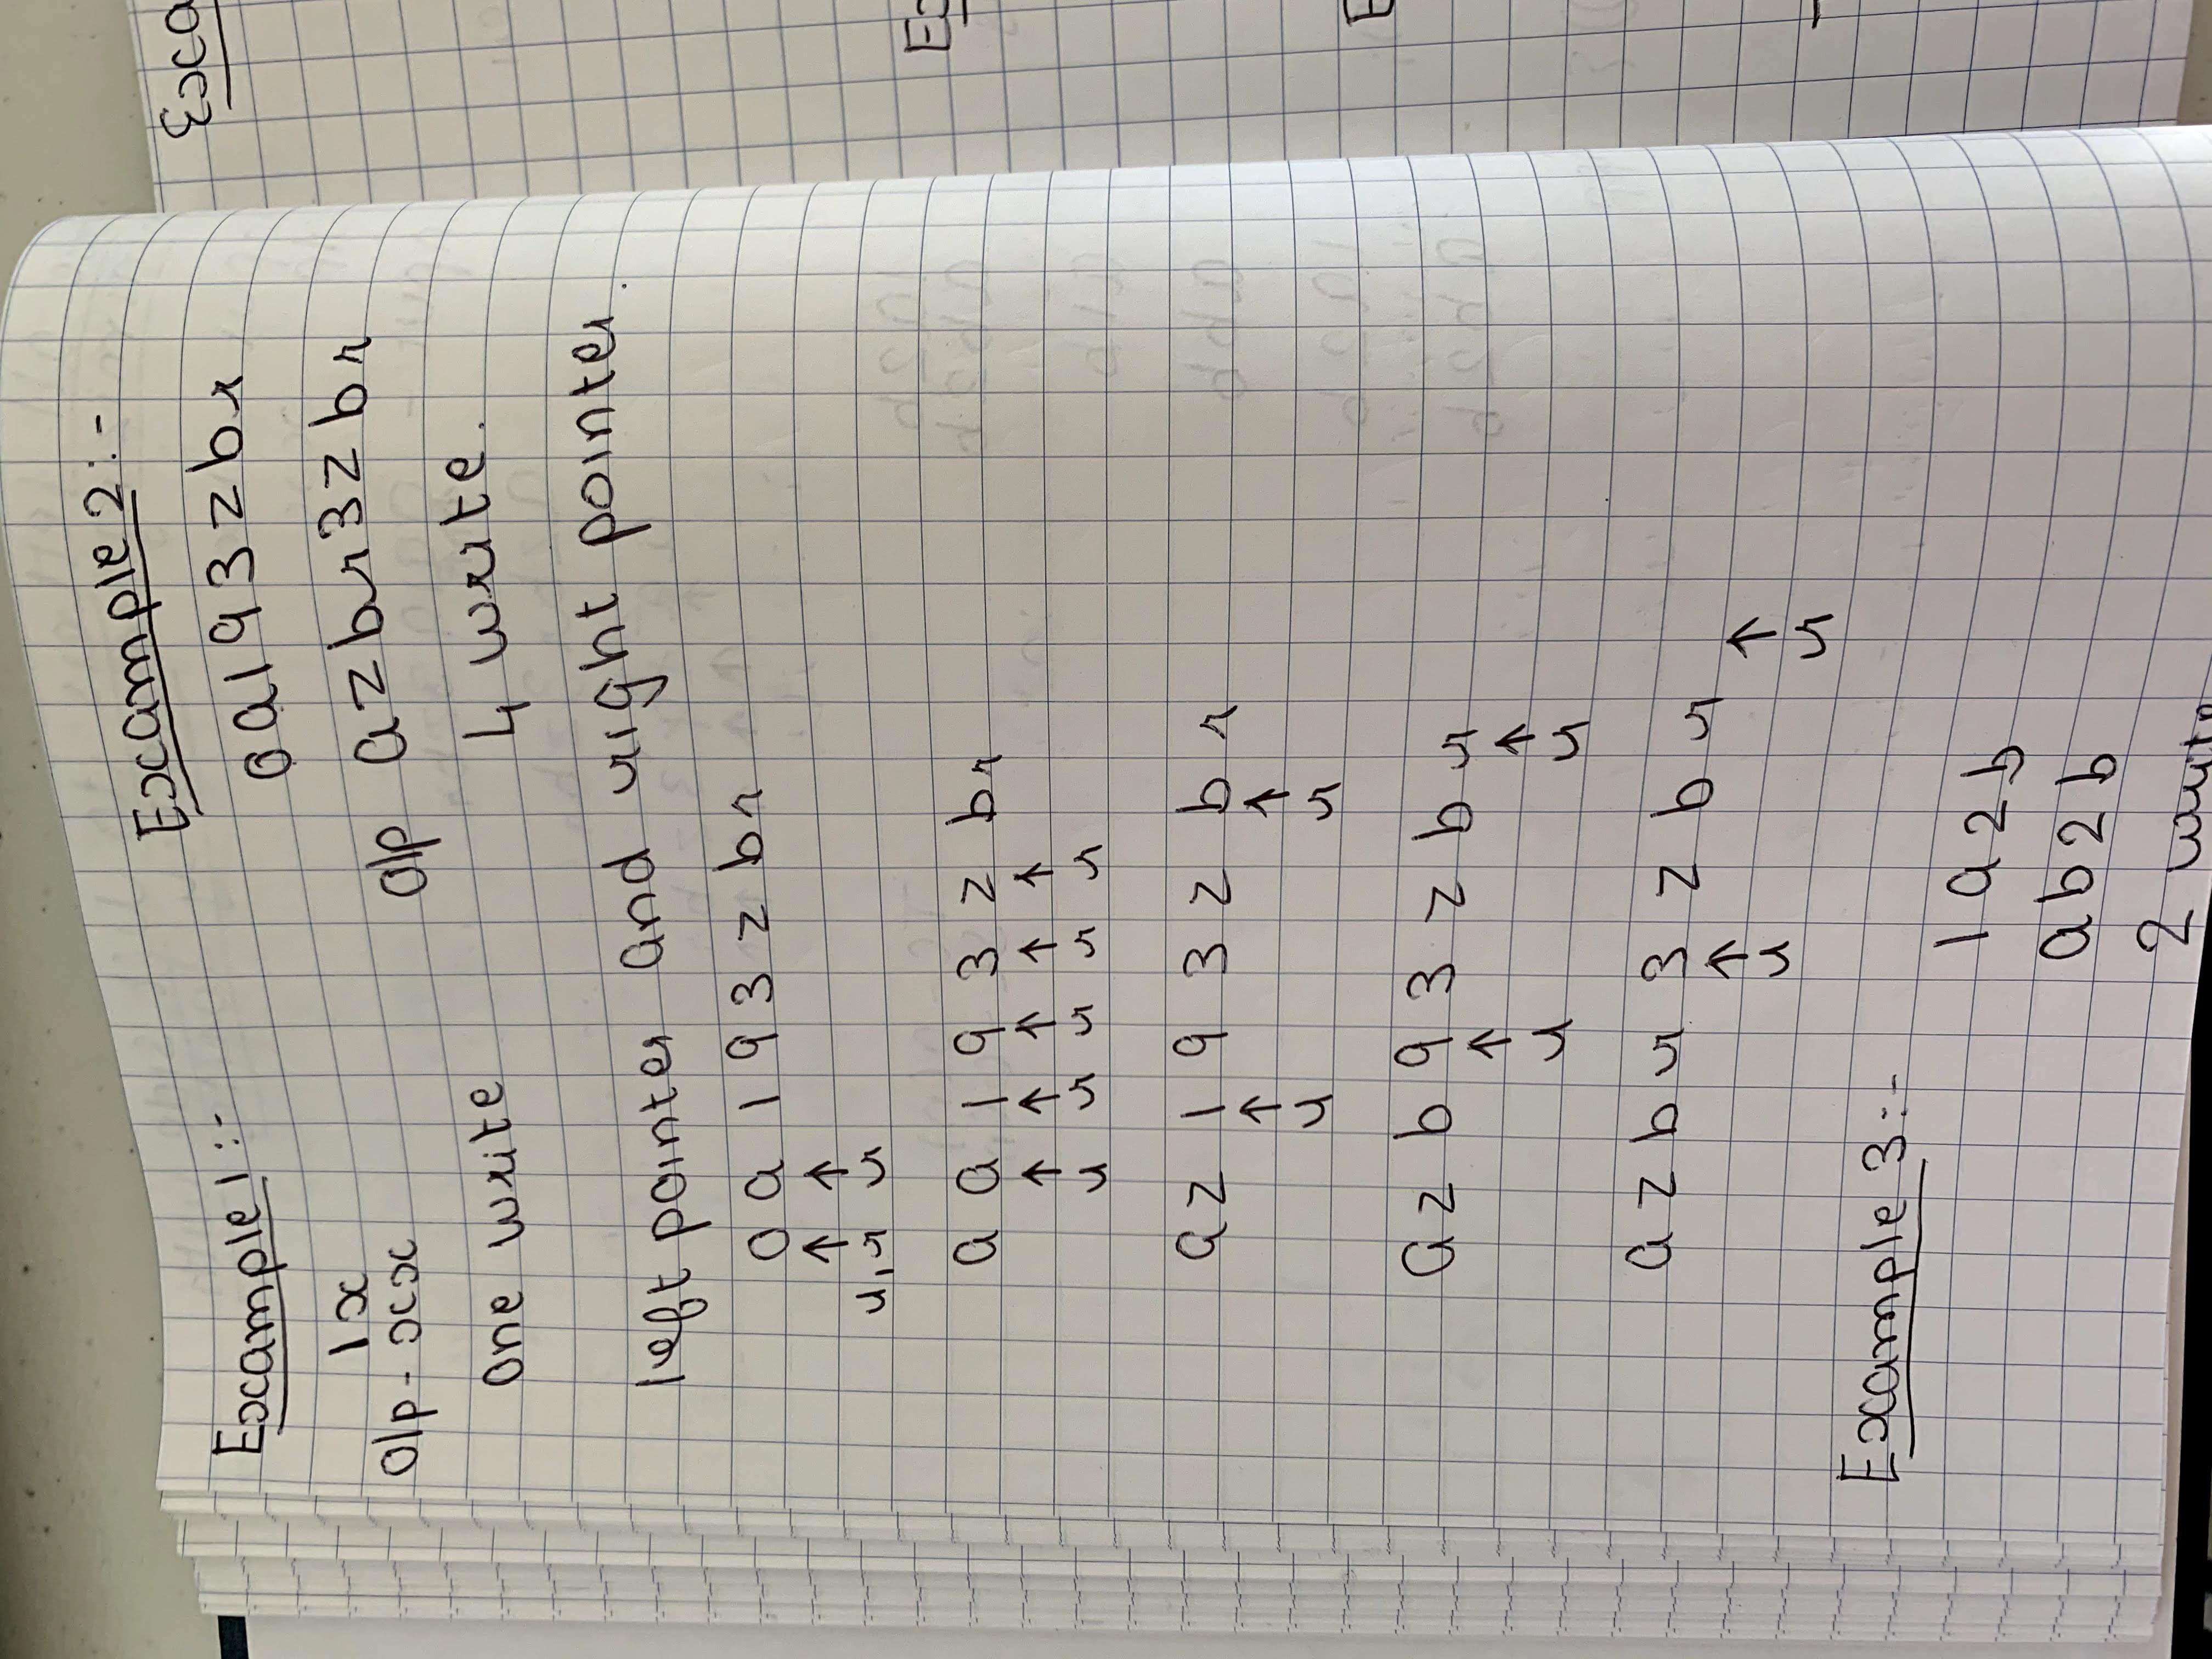 Example 1:-
1x
O/p - xx
One write
Example 2:-
0a193zbr
O/p azbr3zbr
4 write.
left pointer and right pointer.
0 a 1 9 3 z b r
↑ ↑
u,r r
a a 1 9 3 z b r
↑ ↑ ↑ ↑ ↑
u r r r r
a z 1 9 3 z b r
↑ ↑
u r
a z b 9 3 z b r
↑ ↑
u u
a z b r 3 z b r
↑ ↑
u r
Example 3:-
1a2b
ab2b
2 write
Exa